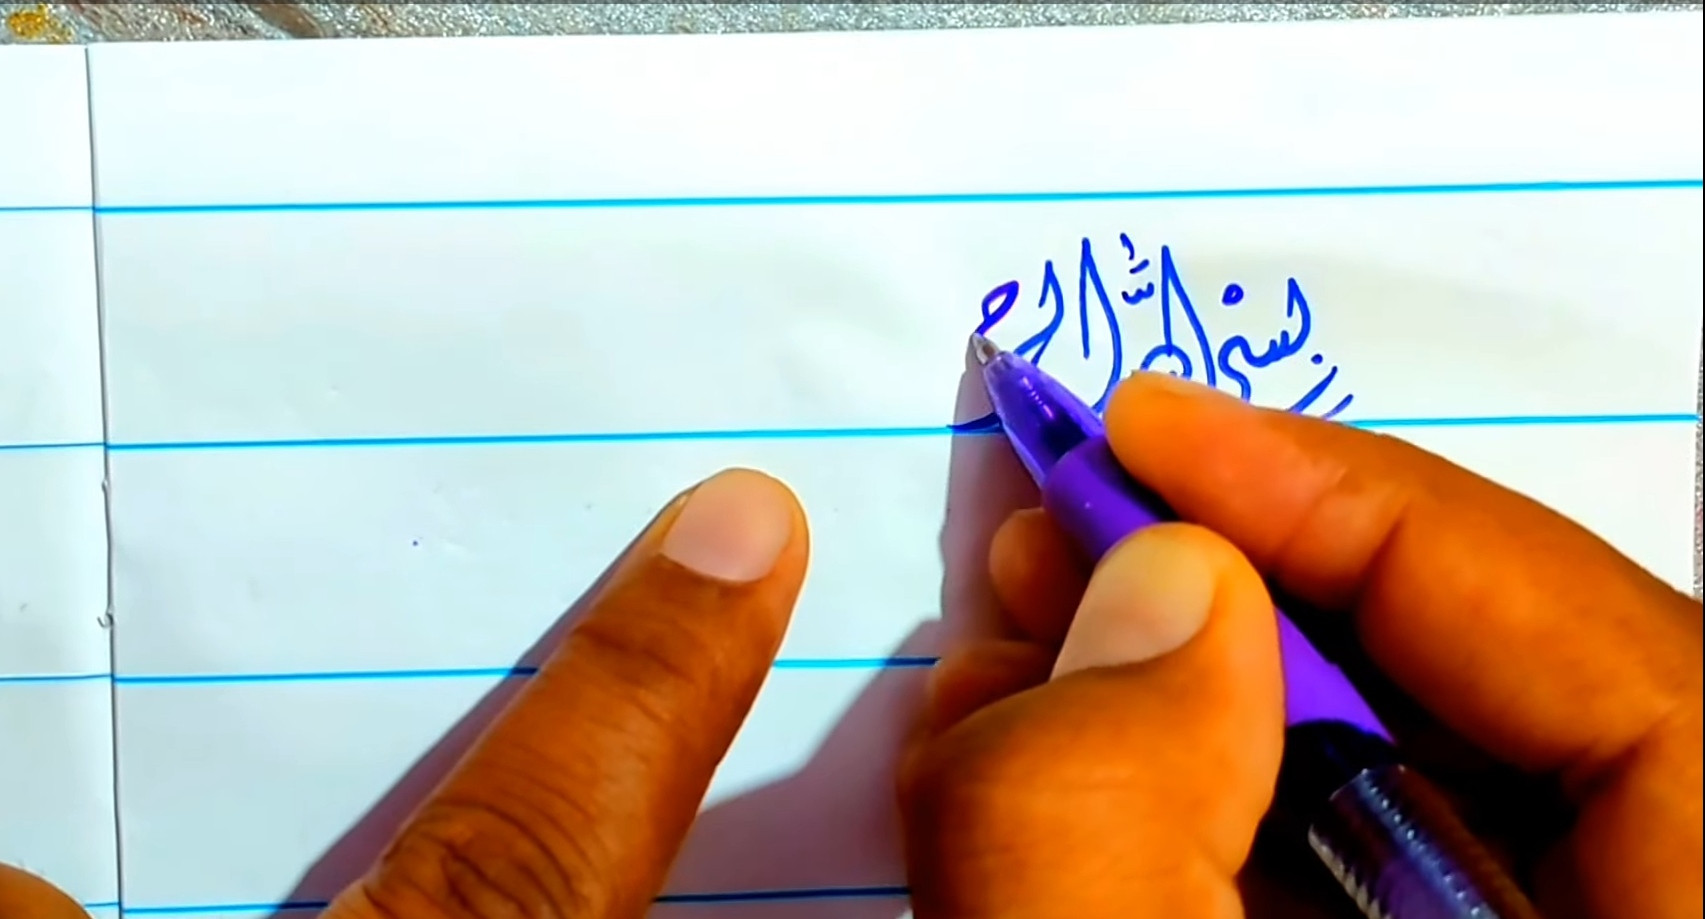 بسم اللّٰه الرحمـ